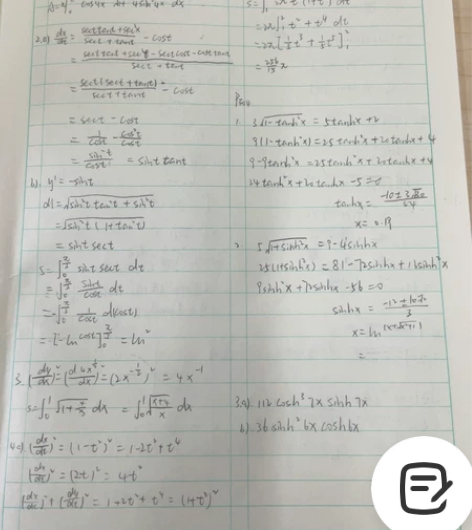 2.a) dx/dt = (sect tant + sec²t)/(sect + tant) - cost
= (sect tant + sec²t - sect cost - cost tant)/(sect + tant)
= sect(sect + tant)/(sect + tant) - cost
= sect - cost
= 1/cost - cos²t/cost
= sin²t/cost = sint tant
b) y' = -sint
dl = √(sin²t tan²t + sin²t)
= √(sin²t (1+tan²t))
= sint sect
s = ∫₀^(π/3) sint sect dt
= ∫₀^(π/3) sint/cost dt
= -∫₀^(π/3) 1/cost d(cost)
= [-ln cost]₀^(π/3) = ln²
3. (dy/dx)² = = (2x^(-1/2))² = 4x⁻¹
s = ∫₀¹ √(1+4/x) dx = ∫₀¹ √((x+4)/x) dx
4.a) (dx/dt)² = (1-t²)² = 1-2t²+t⁴
(dy/dt)² = (2t)² = 4t²
(dx/dt)² + (dy/dt)² = 1+2t²+t⁴ = (1+t²)²
= 2π∫ t²+t⁴ dt
= 2π[1/3 t³ + 1/5 t⁵]
= 256/15 π
1. 3√(1-tanh²x) = 5tanhx+2
9(1-tanh²x) = 25tanh²x + 20tanhx + 4
9-9tanh²x = 25tanh²x + 20tanhx + 4
34tanh²x + 20tanhx - 5 = 0
tanhx =
x = 0.19
2. 5√(1+sinh²x) = 9-4sinhx
25(1+sinh²x) = 81-72sinhx+16sinh²x
9sinh²x + 72sinhx - 56 = 0
sinhx =
x = ln
=
3.a) 112 cosh³7x sinh7x
b) 36 sinh²6x cosh6x